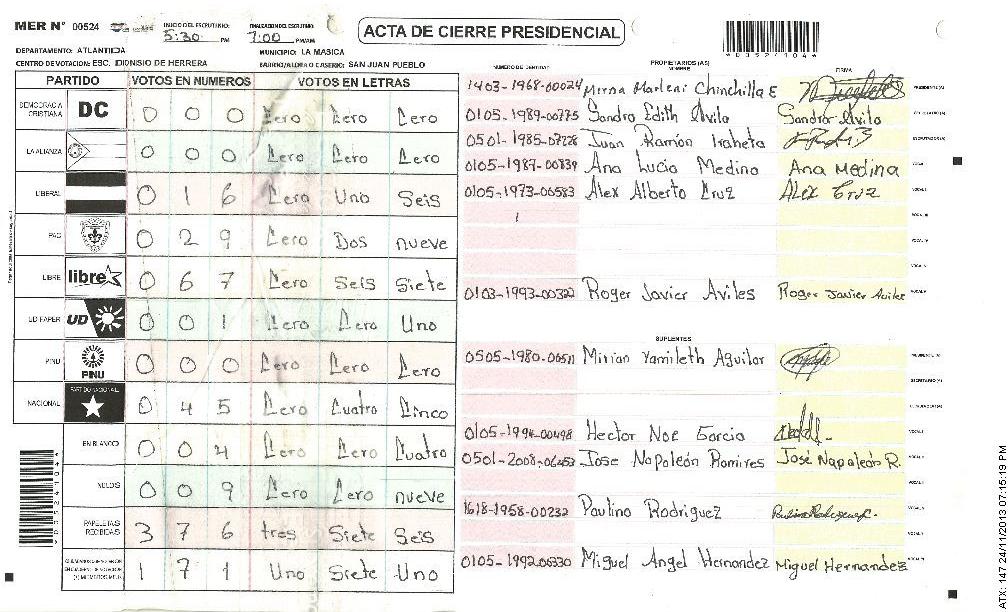 MER N° 00524
INICIO DEL ESCRUTINIO: 5:30 PM
FINALIZACION DEL ESCRUTINIO: 7:00 PM/AM
ACTA DE CIERRE PRESIDENCIAL
DEPARTAMENTO: ATLANTIDA
MUNICIPIO: LA MASICA
CENTRO DE VOTACION: ESC. DIONISIO DE HERRERA
BARRIO/ALDEA O CASERIO: SAN JUAN PUEBLO
PARTIDO VOTOS EN NUMEROS VOTOS EN LETRAS
DEMOCRACIA CRISTIANA DC 0 0 0 Cero Cero Cero
LA ALIANZA 0 0 0 Cero Cero Cero
LIBERAL 0 1 6 Cero Uno Seis
PAC 0 2 9 Cero Dos nueve
LIBRE libre 0 6 7 Cero Seis Siete
UD FAPER UD 0 0 1 Cero Cero Uno
PINU PINU 0 0 0 Cero Cero Cero
NACIONAL PARTIDO NACIONAL 0 4 5 Cero Cuatro Cinco
EN BLANCO 0 0 4 Cero Cero Cuatro
NULOS 0 0 9 Cero Cero nueve
PAPELETAS RECIBIDAS 3 7 6 tres Siete Seis
1 7 1 Uno Siete Uno
NUMERO DE IDENTIDAD
PROPIETARIOS (AS)
NOMBRE
FIRMA
1403-1968-00024 Mirna Marleni Chinchilla E PRESIDENTE(A)
0105-1989-00775 Sandra Edith Avila Sandra Avila
0501-1985-07228 Juan Ramón Iraheta ESCRUTADOR(A)
0105-1987-00839 Ana Lucia Medina Ana Medina VOCAL I
0105-1973-00583 Alex Alberto Cruz Alex Cruz VOCAL II
VOCAL III
VOCAL IV
VOCAL V
0103-1993-00322 Roger Javier Aviles Roger Javier Aviles
SUPLENTES
0505-1980-00511 Mirian Yamileth Aguilar PRESIDENTE (A)
SECRETARIO(A)
ESCRUTADOR(A)
0105-1994-00498 Hector Noe Garcia VOCAL I
0501-2008-06453 Jose Napoleón Ramires José Napoleón R.
1618-1958-00232 Paulino Rodriguez
0105-1992-00330 Miguel Angel Hernandez Miguel Hernandez
ATX: 147 24/11/2013 07:15:19 PM